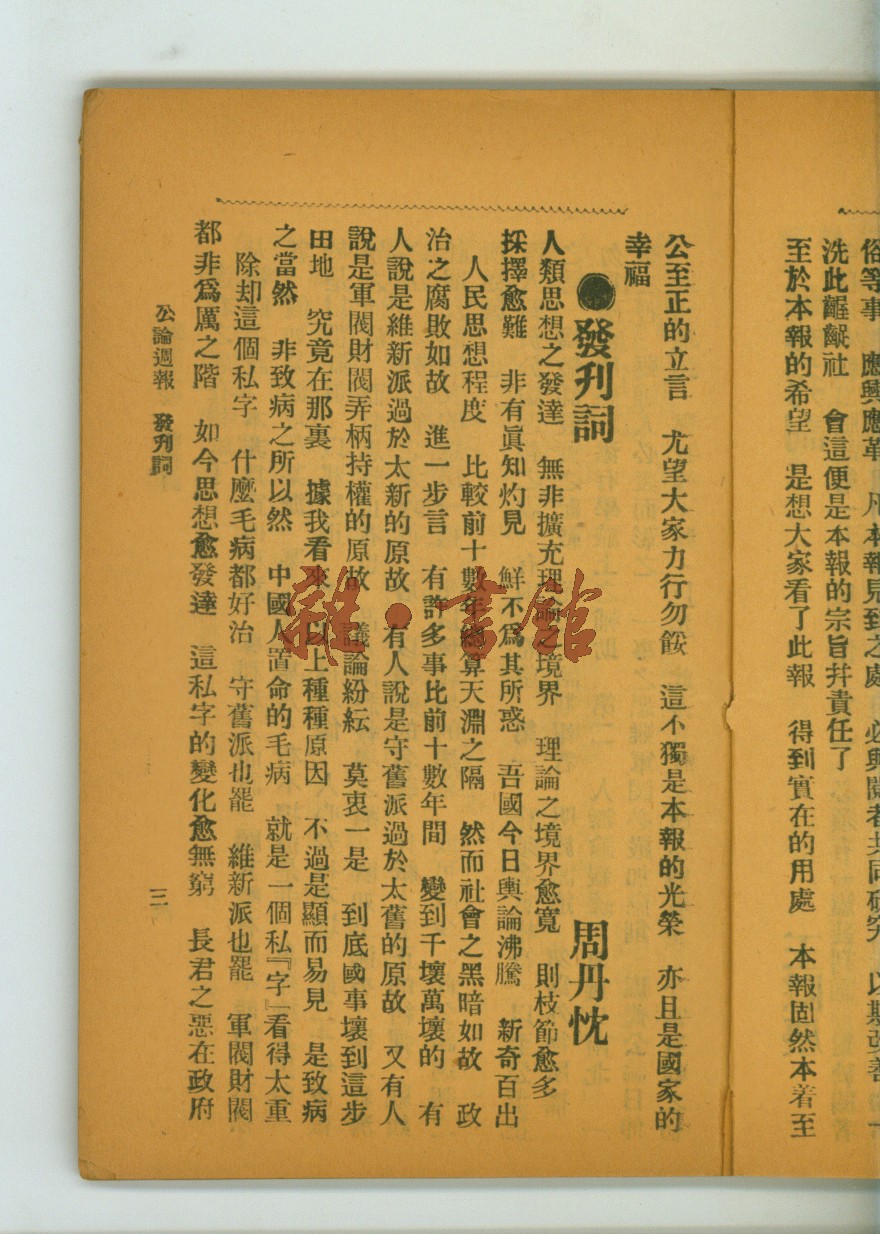 俗等事　應興應革　凡本報見到之處　必與閱者共同研究　以期妥善
洗此齷齪社　會這便是本報的宗旨幷責任了
至於本報的希望　是想大家看了此報　得到實在的用處　本報固然本着至
公至正的立言　尤望大家力行勿餒　這不獨是本報的光榮　亦且是國家的
幸福
●發刊詞　周丹忱
人類思想之發達　無非擴充理論之境界　理論之境界愈寬　則枝節愈多
採擇愈難　非有眞知灼見　鮮不爲其所惑　吾國今日輿論沸騰　新奇百出
人民思想程度　比較前十數年總算天淵之隔　然而社會之黑暗如故　政
治之腐敗如故　進一步言　有許多事比前十數年間　變到千壞萬壞的　有
人說是維新派過於太新的原故　有人說是守舊派過於太舊的原故　又有人
說是軍閥財閥弄柄持權的原故　議論紛紜　莫衷一是　到底國事壞到這步
田地　究竟在那裏　據我看來　以上種種原因　不過是顯而易見　是致病
之當然　非致病之所以然　中國人置命的毛病　就是一個私『字』看得太重
除却這個私字　什麼毛病都好治　守舊派也罷　維新派也罷　軍閥財閥
都非爲厲之階　如今思想愈發達　這私字的變化愈無窮　長君之惡在政府
公論週報　發刊詞
三
雜·書館